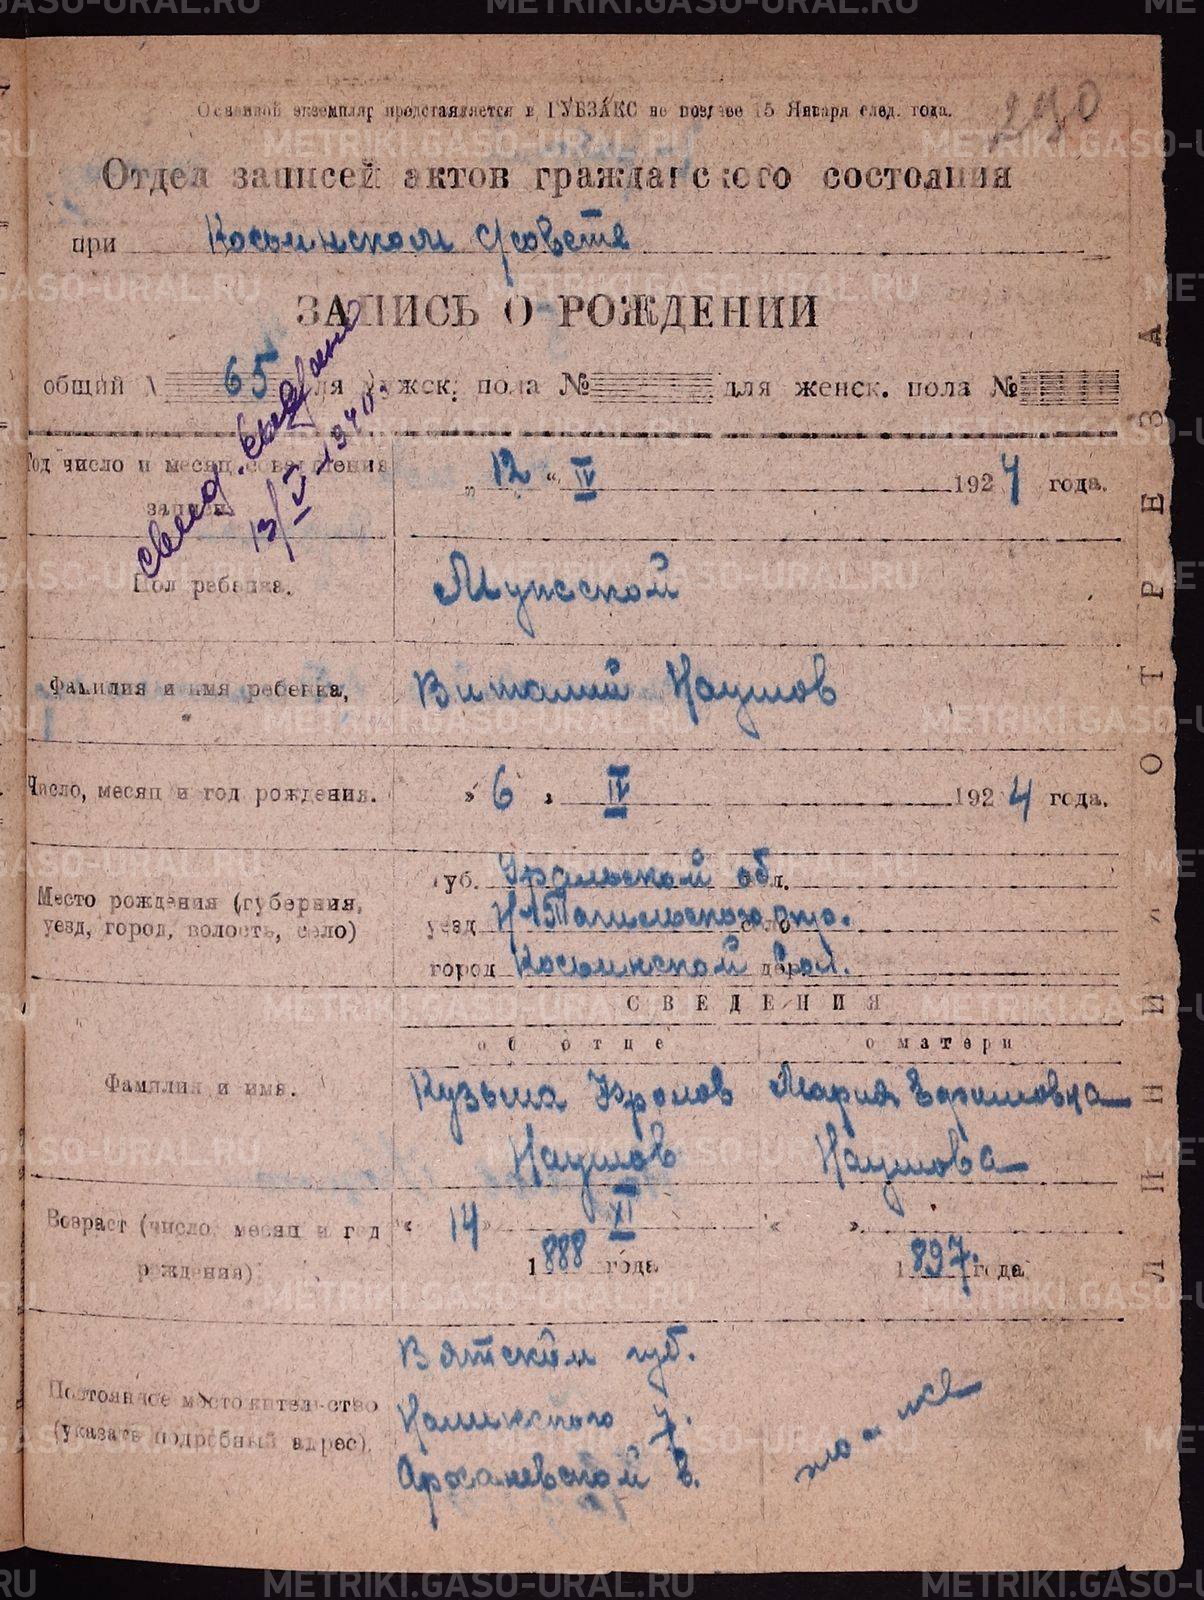 290
Основной экземпляр представляется в ГУБЗАКС не позднее 15 Января след. года.
Отдел записей актов гражданского состояния
при Косьинском с/совете
ЗАПИСЬ О РОЖДЕНИИ
общий № 65 для мужск. пола № для женск. пола №
свид. выдано
13/V-1940
Год число и месяц совершения записи. „ 12 “ IV 1924 года.
Пол ребенка. Мужской
Фамилия и имя ребенка, Виталий Наумов
Число, месяц и год рождения. „ 6 „ IV 1924 года.
Место рождения (губерния, уезд, город, волость, село)
губ. Уральской обл.
уезд Н-Тагильского окр.
город Косьинской вол.
СВЕДЕНИЯ
об отце о матери
Фамилия и имя. Кузьма Фролов Мария Ефимовна
Наумов Наумова
Возраст (число, месяц и год рождения) « 14 » XI « »
1888 года 1897. года
Постоянное местожительство (указать подробный адрес).
Вятской губ.
у.
в.
то-же
ЛИНИЯ ОТРЕЗА
METRIKI.GASO-URAL.RU